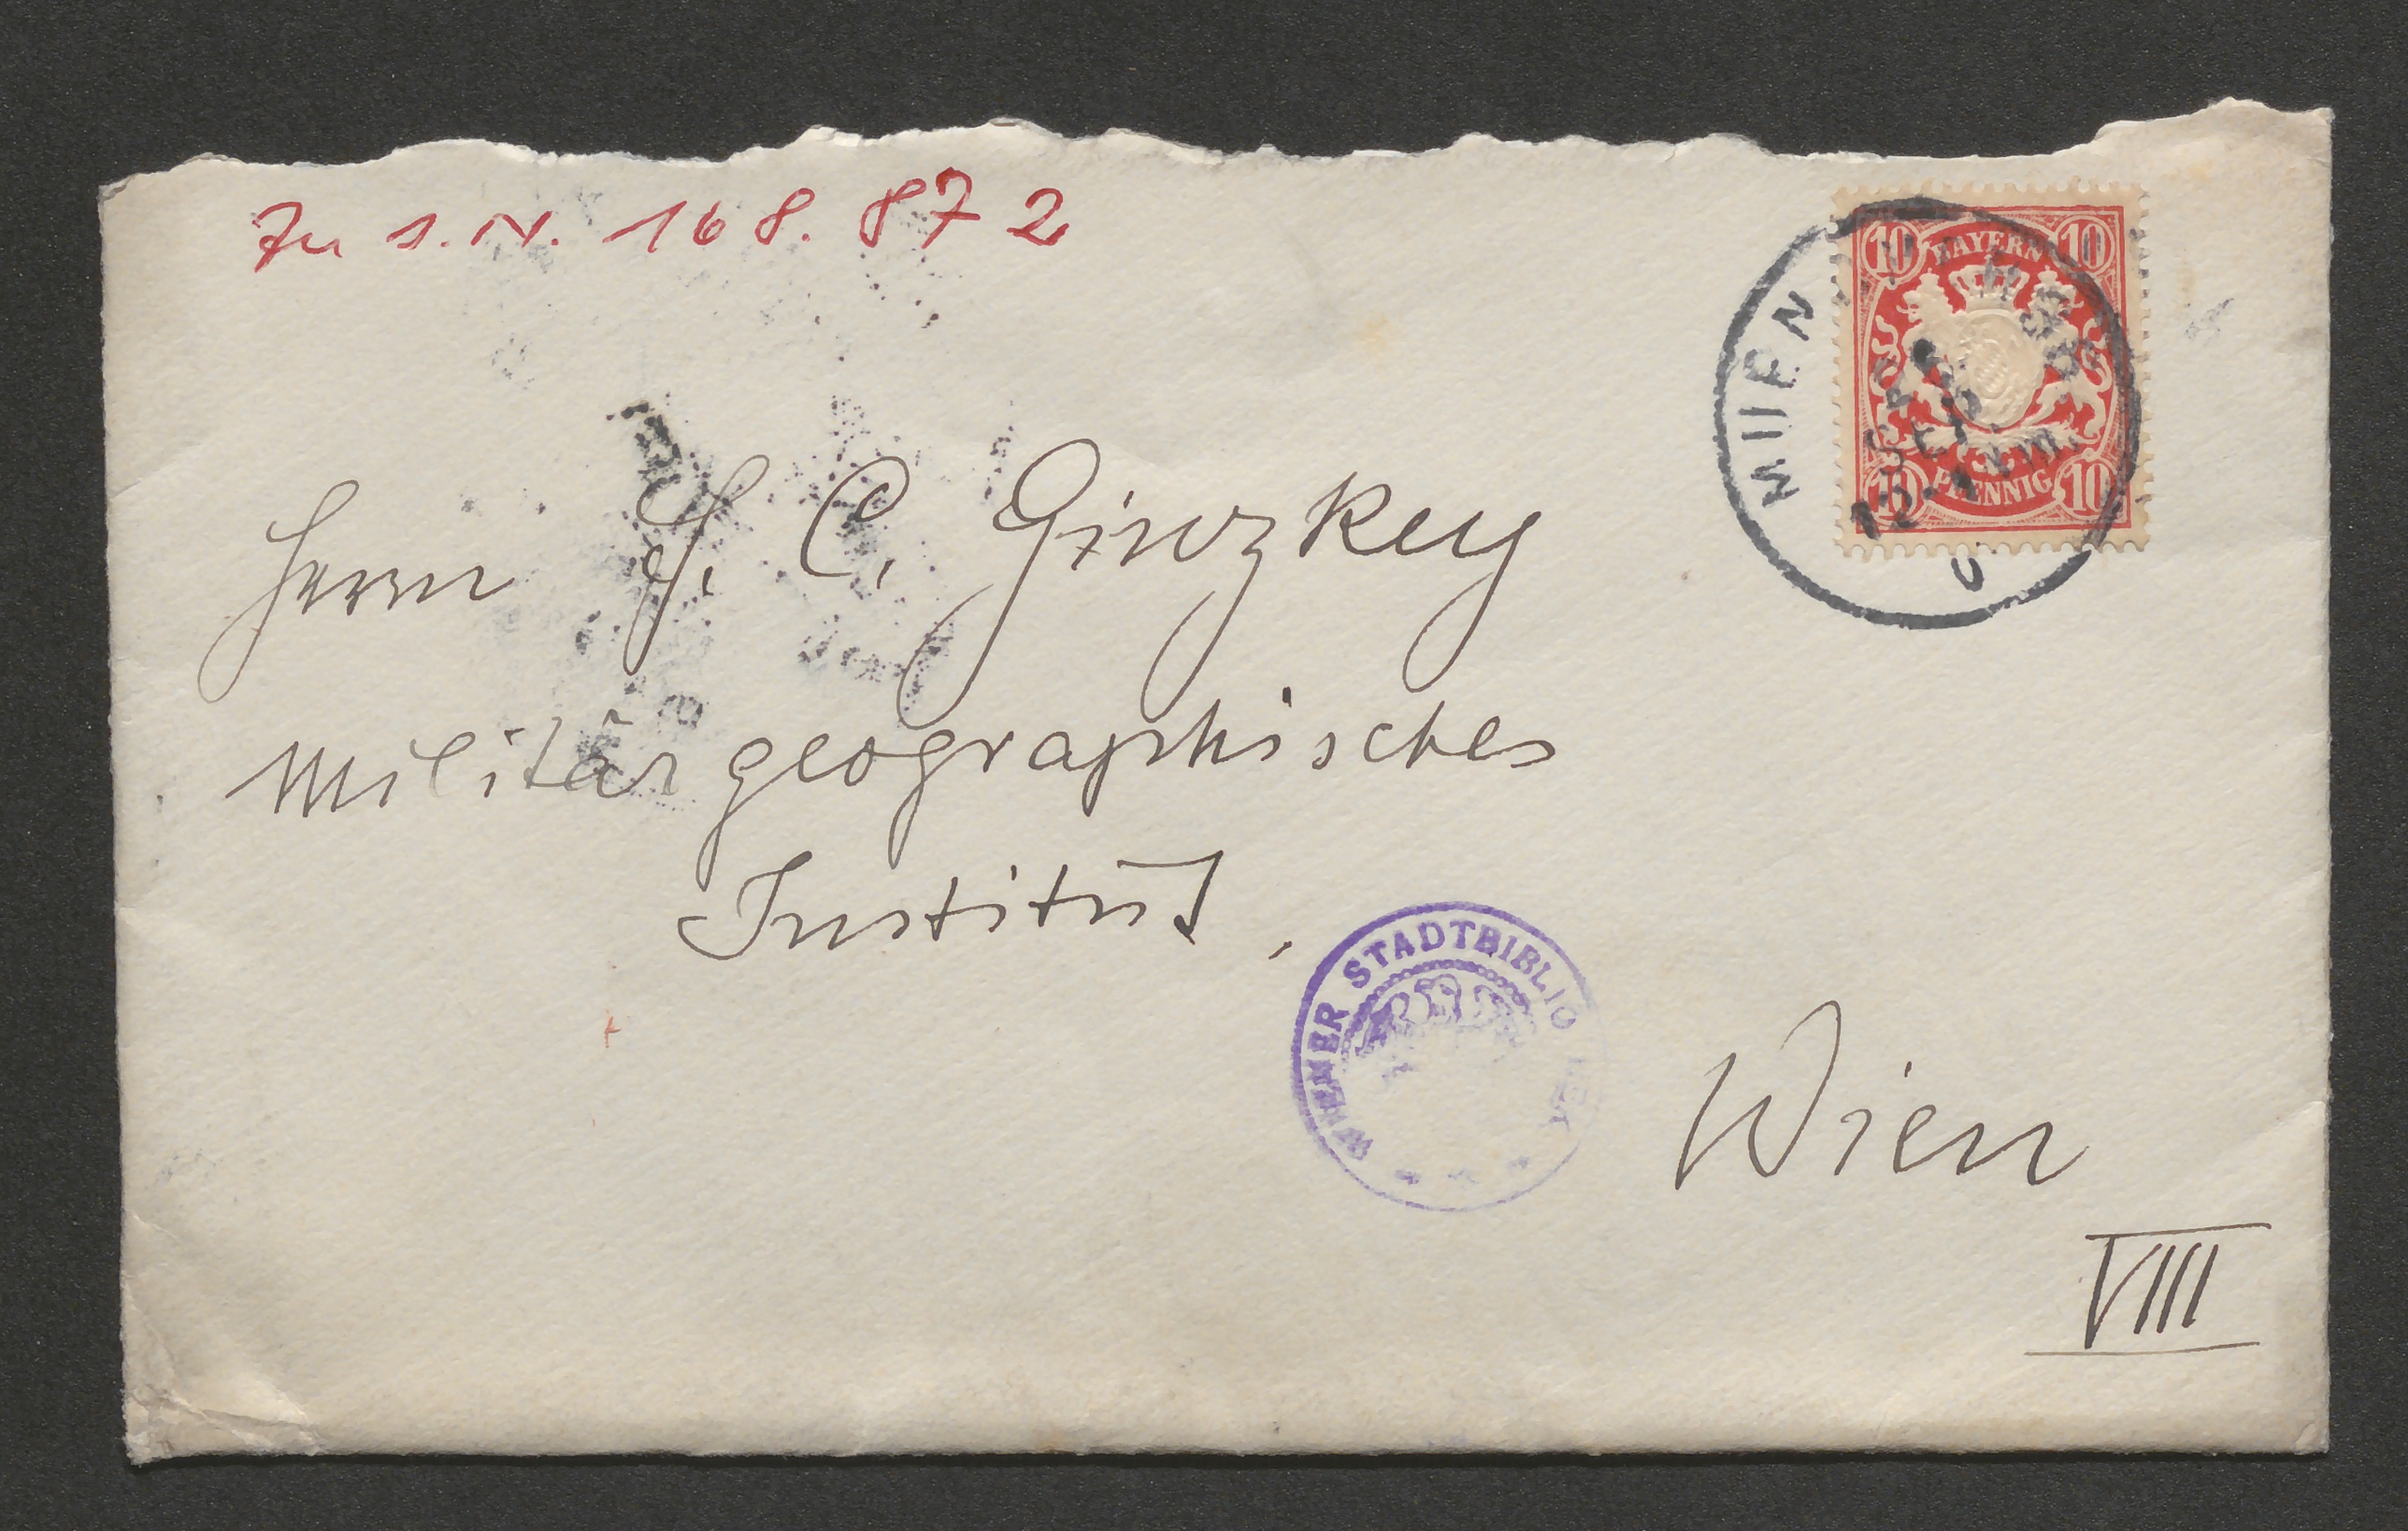 Zu I.N. 168.872
10 BAYERN 10
10 PFENNIG 10
Herrn F. C. Ginzkey
Militärgeographisches
Institut,
WIENER STADTBIBLIOTHEK
Wien
VIII